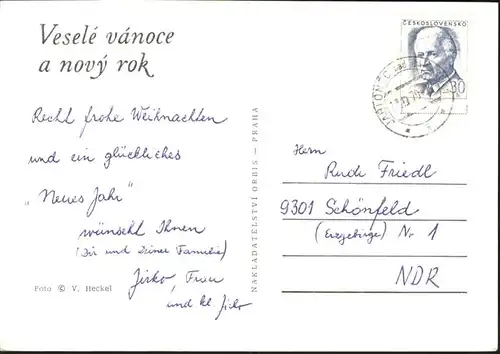 Veselé vánoce
a nový rok
Recht frohe Weihnachten
und ein glückliches
"Neues Jahr"
wünscht Ihnen
(Dir und Deiner Familie)
Jirko, Frau
und kl. Jirko
Foto © V. Heckel
NAKLADATELSTVÍ ORBIS – PRAHA
ČESKOSLOVENSKO
30
Herrn
Rudi Friedl
9301 Schönfeld
(Erzgebirge) Nr 1
NDR